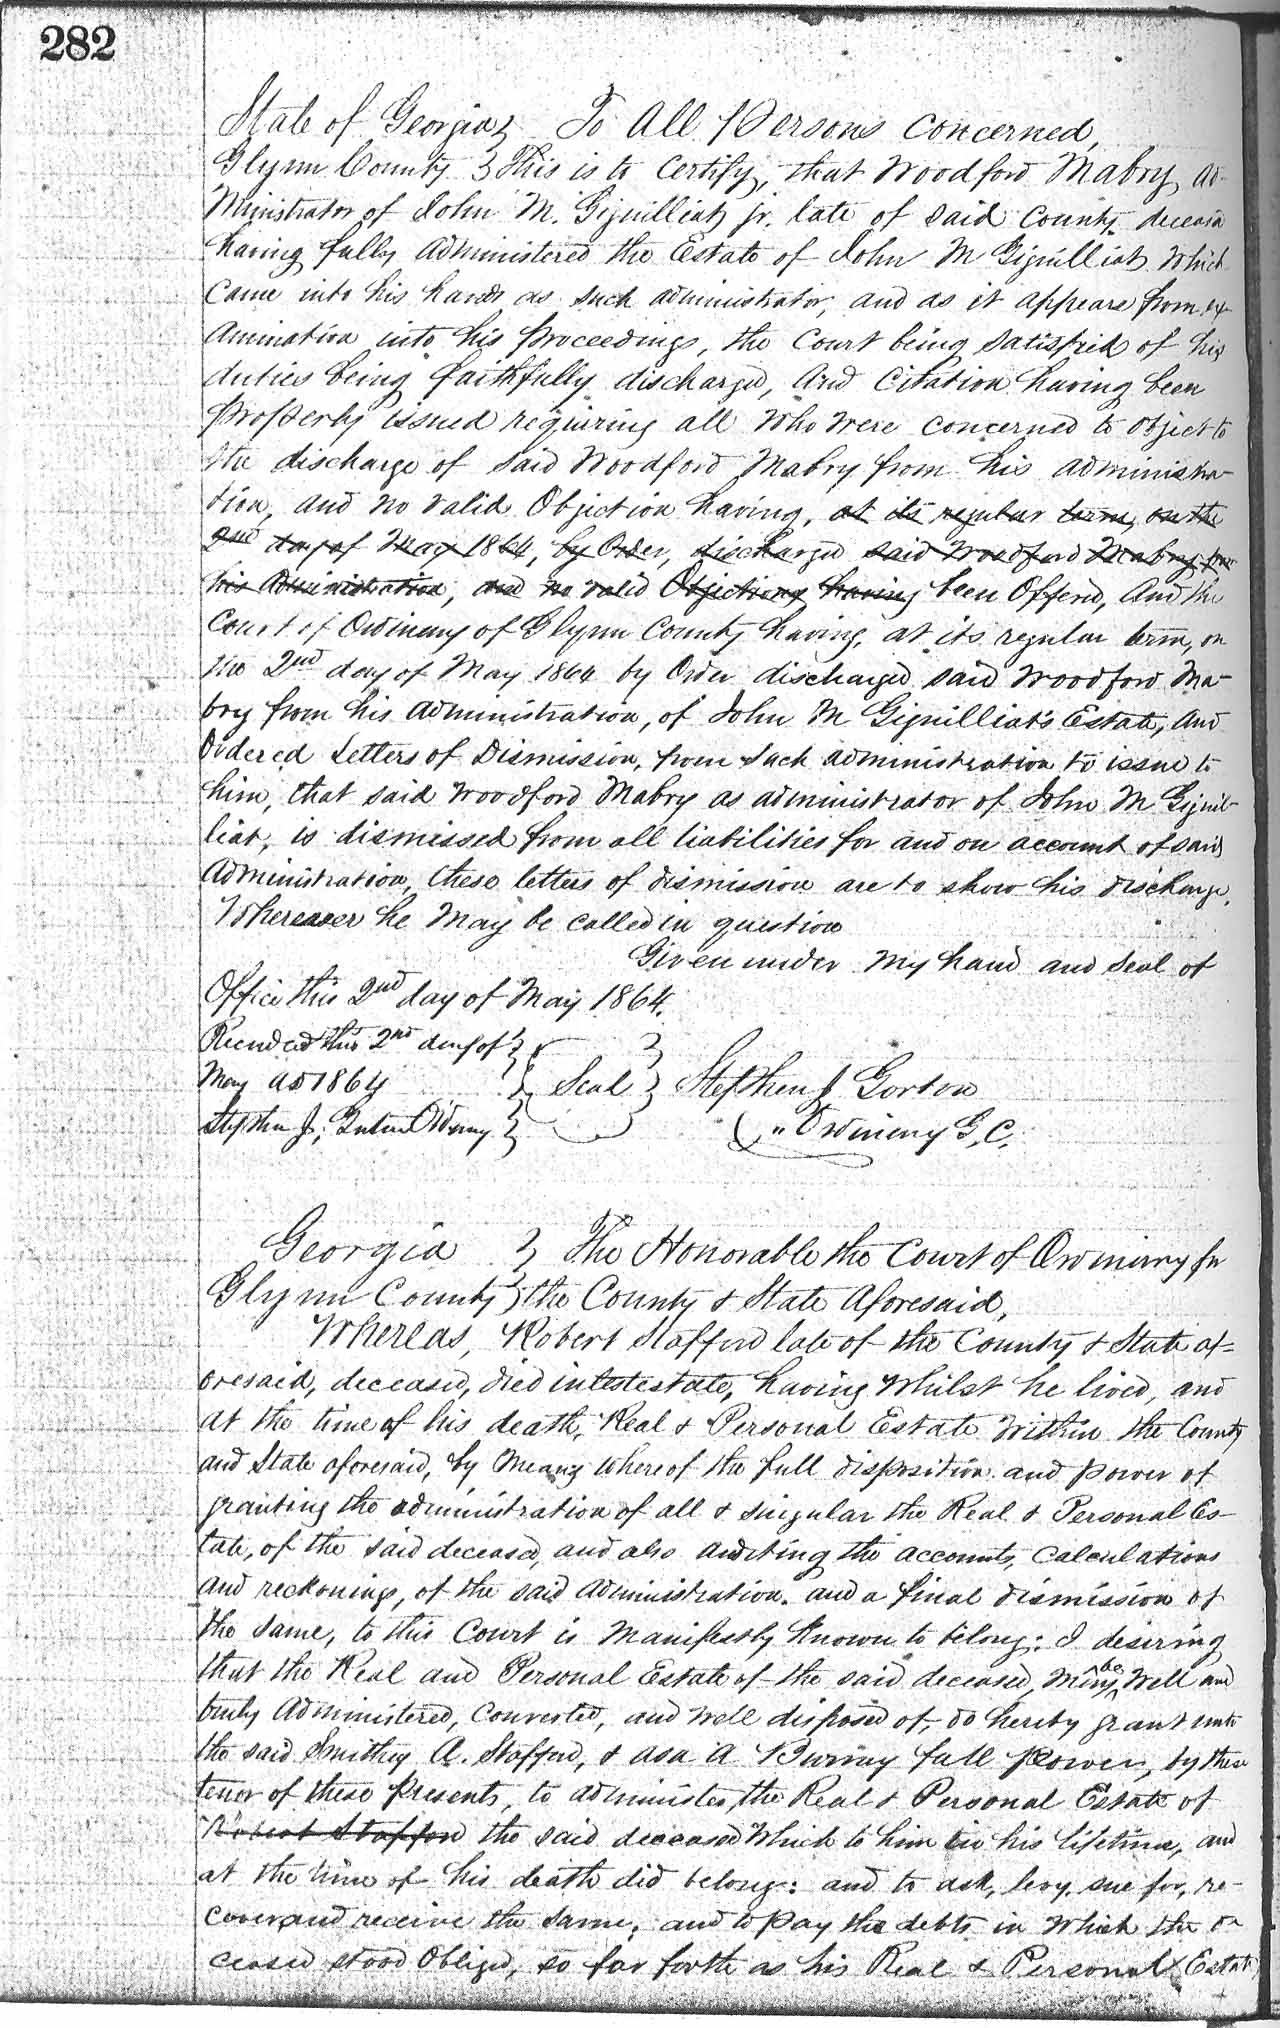 282
State of Georgia } To All Persons Concerned,
Glynn County } This is to Certify, that Woodford Mabry, ad-
ministrator of John M. Gignilliat jr. late of said County deceasd
having fully administered the Estate of John M Gignilliat which
Came into his hands as such administrator, and as it appears from ex-
amination into his proceedings, the Court being satisfied of his
duties being faithfully discharged, And Citation having been
properly issued requiring all who were concerned to object to
the discharge of said Woodford Mabry from his administra-
tion, and no valid Objection having, at its regular term, on the
2nd day of May 1864, by Order, discharged said Woodford Mabry from
his Administration, and no valid Objections having been Offered, And the
Court of Ordinary of Glynn County having, at its regular term, on
the 2nd day of May 1864 by Order discharged said Woodford Ma-
bry from his administration, of John M Gignilliat's Estate, And
Ordered Letters of Dismission, from such administration to issue to
him, that said Woodford Mabry as administrator of John M Gignil-
liat, is dismissed from all liabilities for and on account of said
Administration, these letters of dismission are to show his discharge,
Whereever he may be called in question
Given under my hand and seal of
Office this 2nd day of May 1864.
Recorded this 2nd day of }
May AD 1864 } Seal } Stephen J Gorton
Stephen J, Gorton Ordinary } " Ordinary G, C,
Georgia } The Honorable the Court of Ordinary for
Glynn County } the County & State Aforesaid,
Whereas, Robert Stafford late of the County & State af=
oresaid, deceased, died intestestate, having whilst he lived, and
at the time of his death, Real & Personal Estate within the County
and State aforesaid, by means whereof the full disposition and power of
granting the administration of all & singular the Real & Personal Es-
tate, of the said deceased, and also auditing the accounts, Calculations
and reckonings, of the said administration, and a final dismission of
the same, to this Court is manifestly known to belong: I desiring
that the Real and Personal Estate of the said deceased, may be well and
truly Administered, Converted, and well disposed of, do hereby grant unto
the said Smithey A. Stafford, & Asa A Burney full power, by the
tenor of these presents, to administer, the Real & Personal Estate of
Robert Stafford the said deceased which to him in his lifetime, and
at the time of his death did belong: and to ask, levy, sue for, re-
cover and receive the same, and to pay the debts in which the de
ceased stood Obliged, so far forth as his Real & Personal Estate